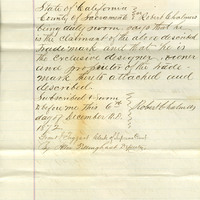 State of California
County of Sacramento } Robert Chalmers
being duly sworn says that he
is the claimant of the above described
Trade mark and that he is
the exclusive designer, owner
and proprietor of the trade
mark hereto attached and
described.
Subscribed & sworn
to before me this 6th Robert Chalmers
day of December A.D.
1872
Clerk of Supreme Court
By Deputy